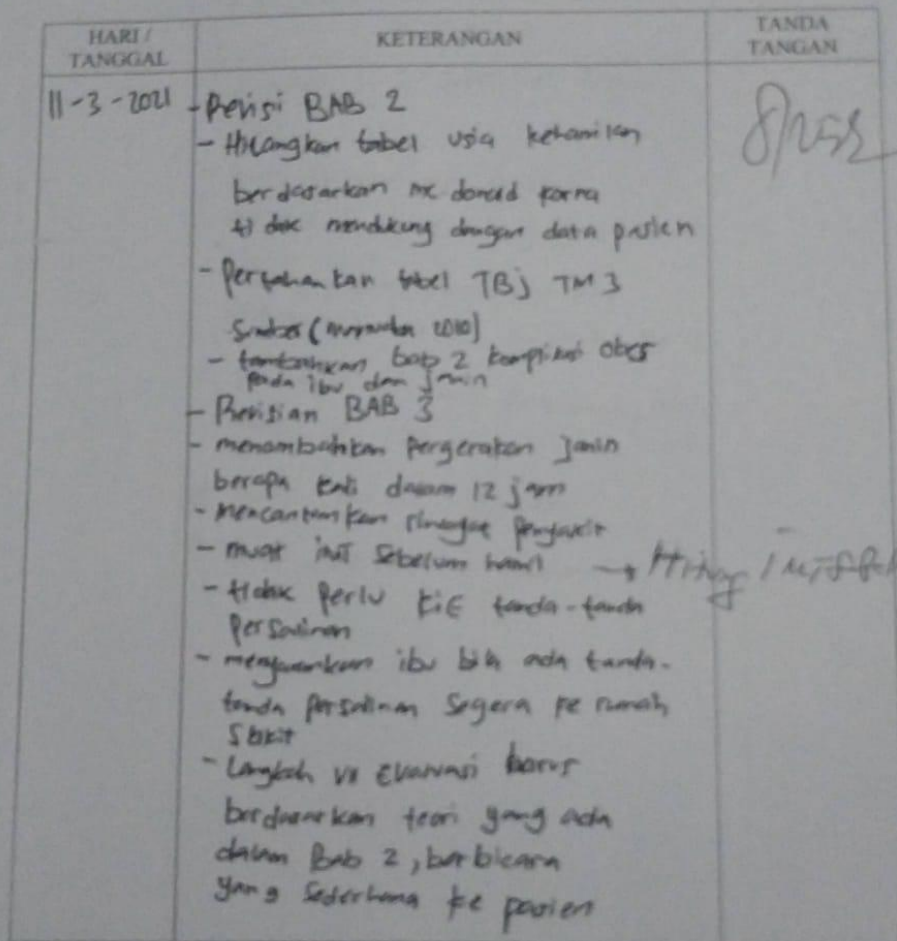 HARI /
TANGGAL
KETERANGAN
TANDA
TANGAN
11-3-2021
- Revisi BAB 2
- Hilangkan tabel usia kehamilan
berdasarkan mc donald karna
tidak mendukung dengan data pasien
- Pertahankan tabel TBJ TM 3
Sumber ( 2010)
- tambahkan bab 2 komplikasi obes
pada ibu dan janin
- Revisian BAB 3
- menambahkan Pergerakan Janin
berapa kali dalam 12 jam
- mencantumkan riwayat penyakit
- muat imt sebelum hamil →
- tidak Perlu KIE tanda-tanda
Persalinan
- menganjurkan ibu bila ada tanda-
tanda persalinan Segera ke rumah
Sakit
- Langkah VII Evaluasi harus
berdasarkan teori yang ada
dalam Bab 2, berbicara
yang Sederhana ke pasien